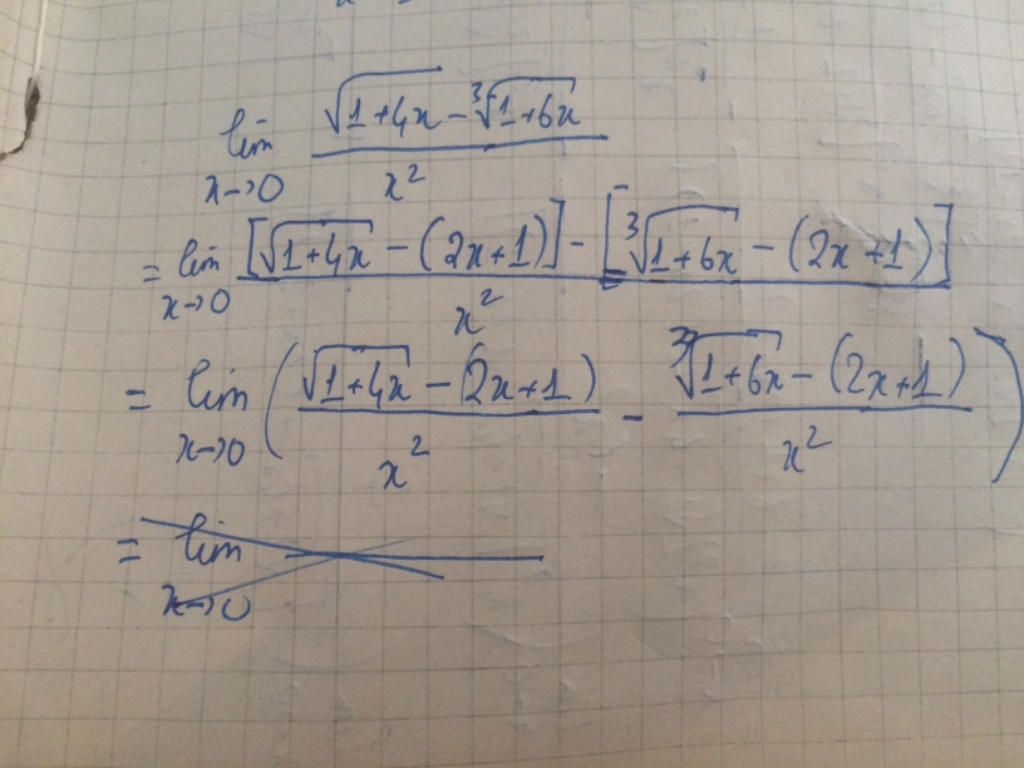 lim x→0 (√(1+4x) - ∛(1+6x)) / x²
= lim x→0 ([√(1+4x) - (2x+1)] - [∛(1+6x) - (2x+1)]) / x²
= lim x→0 ((√(1+4x) - (2x+1)) / x² - (∛(1+6x) - (2x+1)) / x²)
= lim x→0